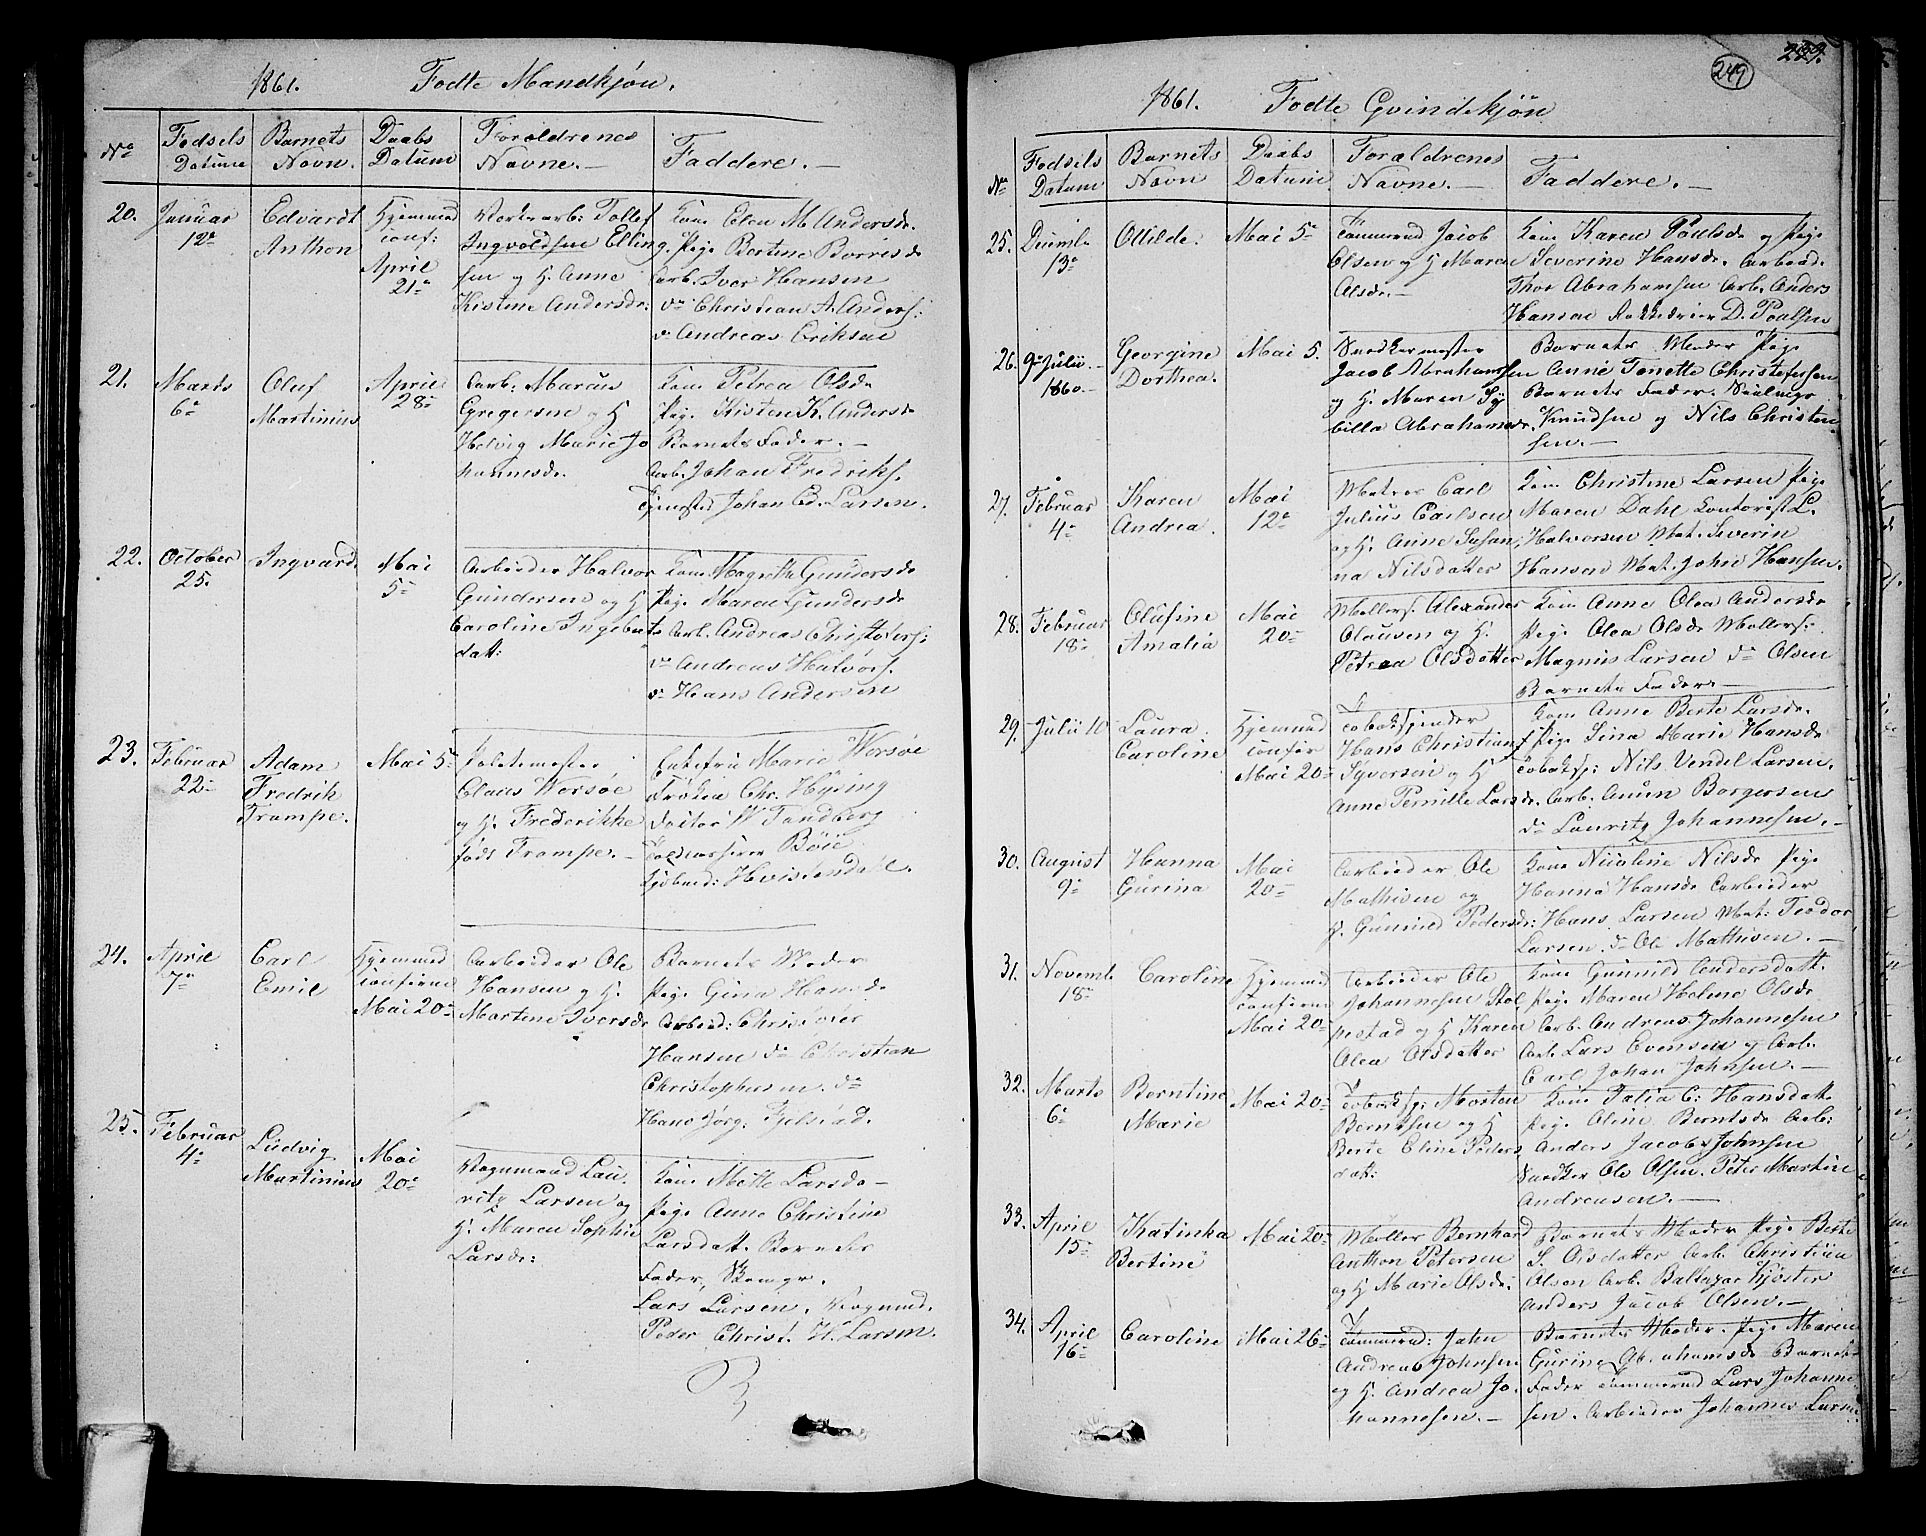 1861. Fødte Mandkjøn.
No Fødsels Datum Barnets Navn. Daabs Datum Forældrenes Navne.— Faddere.—
20. Januar Edvardt Hjemmed Tollef Kone Elen M. Andersd.
12te Anthon conf: Ingvoldsen Elling Pige Bertine Borrisd
April sen og H. Anne Arb. Iver Hansen
21de Kistine Andersd: do Christian A. Anders:
do Andreas Eriksen
21. Marts Oluf April Arb: Marcus Kone Petrea Olsd.
6te Martinius 28de Gregersen og H Pige Kisten K. Andersd
Helvig Marie Jo Barnets Fader.—
hannesd. Arb. Johan Fredriks.
Johan Ed. Larsen.
22. October Ingvard Mai Arbeider Halvor Kone Magrethe Gundersd
25. 5te Gundersen og H Pige Maren Gundersd
Caroline Ingebrets Arb. Andreas Christofers:
dat: do Andreas Halvors.
do Hans Andersen
23. Februar Adam Mai 5te Enkefru Marie Worsøe
22de Fredrik Claus Worsøe Frøken Chr. Hysing
Trampe. og H. Frederikke Doctor W. Tandberg
født Trampe.— Bøie
Hvistendahl.
24. April Carl Hjemmed Arbeider Ole Barnets Moder
7de Emil confirm Hansen og H. Pige Gina Hansd.
Mai 20de Martine Iversd Arbeid: Christofer
Hansen do Christian
Christophersen. do
Hans Jørg. Fjelstad.
25. Februar Ludvig Mai Vognmand Lau Kone Mette Larsd.—
4de Martinius 20de ritz Larsen og Pige Anne Christine
H. Maren Sophie Larsdatt. Barnets
Larsd: Fader,
Lars Larsen. Vognmd.
Peder Christ. H. Larsen.
249
1861. Fødte Qvindekjøn
No Fødsels Datum Barnets Navn Daabs Datum Forældrenes Navne.— Faddere.—
25. Ottilde. Mai 5te Tømmermd Jacob Kone Karen Poulsd. og Pige
13de Olsen og H Maren Severine Hansd. Arbeid.
Olsd.— Thor Abrahamsen Arb. Anders
Hansen D. Poulsen
26. 9de Julii Georgine Mai 5. Snedkermester Barnets Moder Pige
1860 Dorthea. Jacob Abrahamsen Anne Tonette Christofersen
og H. Maren Sy Barnets Fader.
billa Abrahamsd. Knudsen og Nils Christen
sen.—
27. Februar Karen Mai Matros Carl Kone Christine Larsen Pige
4de Andrea. 12te Julius Carlsen Maren Dahl Kontorist L.
og H. Anne Susan Halvorsen Mat. Severin
na Nilsdatter Hansen Mat. John Hansen.
28. Februar Olufine Mai Møllers. Alexander Kone Anne Olea Andersd
18de Amalia 20de Olausen og H. Pige Olea Olsd. Møllers:
Petrea Olsdatter Magnus Larsen do Olsen
Barnets Fader—
29. Julii 10 Laura Hjemmed Tobakspinder Kone Anne Berte Larsd.
Caroline confir Hans Christian Pige Lina Marie Hansd
Mai 20de Syversen og H Tobaksp: Nils Vendel Larsen.
Anne Pernille Larsd. Arb. Anun Borgersen
do Lauritz Johannesen.—
30. August Hanna Mai Arbeider Ole Kone Nicoline Nilsd. Pige
9de Gurina 20de Mathisen og Hanna Hansd Arbeider
H. Gunnild Pedersd: Hans Larsen Mat: Teodor
Larsen. do Ole Mathisen.—
31. Novemb. Caroline Hjemmed Arbeider Ole Kone Gunnild Andersdatt.
18de confirm Johannesen Stol Pige Maren Helene Olsd.
Mai 20de pestad og H Karen Arb. Andreas Johannesen
Olea Olsdatter Arb. Lars Evensen og Arb.
Carl Johan Johnsen.—
32. Marts Berntine Mai 20de Tobaksp: Morten Kone Talia C: Hansdatt.
6te Marie Berntsen og H Pige Oline Berntsd. Arb:
Berte Eline Peders Anders Jacob Johnsen
dat: Snedker Ole Olsen. Peter Martin
Andreasen.—
33. April Katinka Mai 20de Møller Bernhard Barnets Moder Pige Berte
15de Bertine Anthon Petersen S. Olsdatter Arb. Christian
og H Marie Olsd: Olsen Arb. Baltazar Kjøster
Anders Jacob Olsen.—
34. April Caroline Mai 26de Tømmermd: John Barnets Moder. Pige Maren
16de Andreas Johnsen Gurine Abrahamsd. Barnets
og H. Andrea Jo Fader Tømmermd Lars Johanne
hannesen.— sen. Arbeider Johannes Larsen